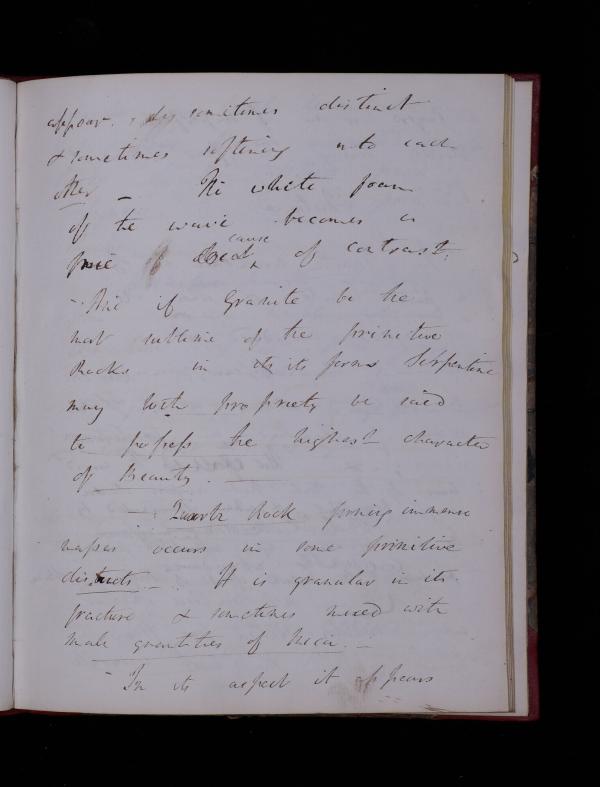 appear. sometimes distinct
& sometimes softening into each
other _ The white foam
of the wave becomes a
cause of contrast.
- And if Granite be the
most sublime of the primitive
Rocks in its forms Serpentine
may with propriety be said
to possess the highest character
of Beauty.
- Quartz Rock forming immense
masses occurs in some primitive
districts _ It is granular in its
fracture & sometimes mixed with
small quantities of Mica. _
- In its aspect it appears